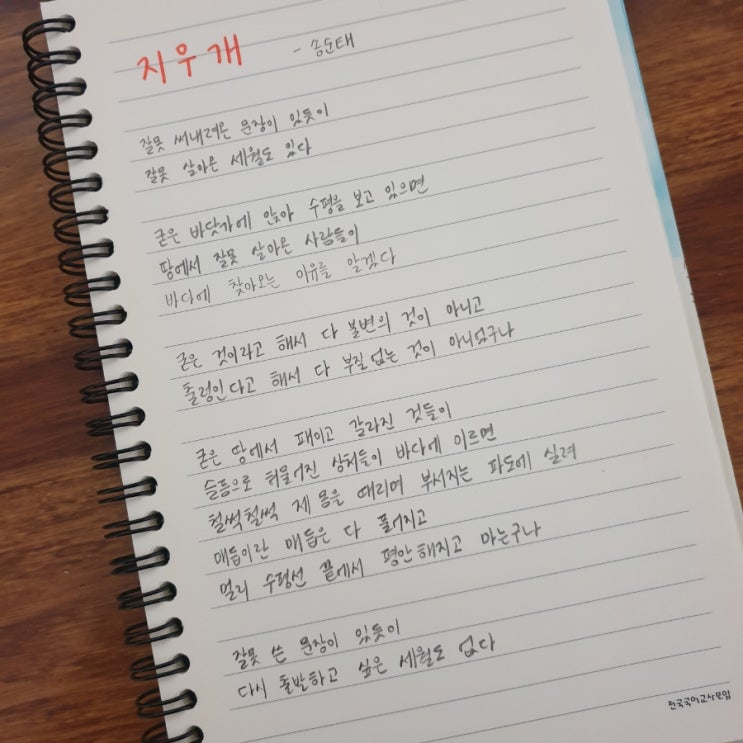 지우개 - 송순태
잘못 써내려온 문장이 있듯이
잘못 살아온 세월도 있다
굳은 바닷가에 앉아 수평을 보고 있으면
땅에서 잘못 살아온 사람들이
바다에 찾아오는 이유를 알겠다
굳은 것이라고 해서 다 불변의 것이 아니고
출렁인다고 해서 다 부질없는 것이 아니었구나
굳은 땅에서 패이고 갈라진 것들이
슬픔으로 허물어진 상처들이 바다에 이르면
철썩철썩 제 몸을 때리며 부서지는 파도에 실려
매듭이란 매듭은 다 풀어지고
멀리 수평선 끝에서 평안해지고 마는구나
잘못 쓴 문장이 있듯이
다시 출발하고 싶은 세월도 있다
전국국어교사모임